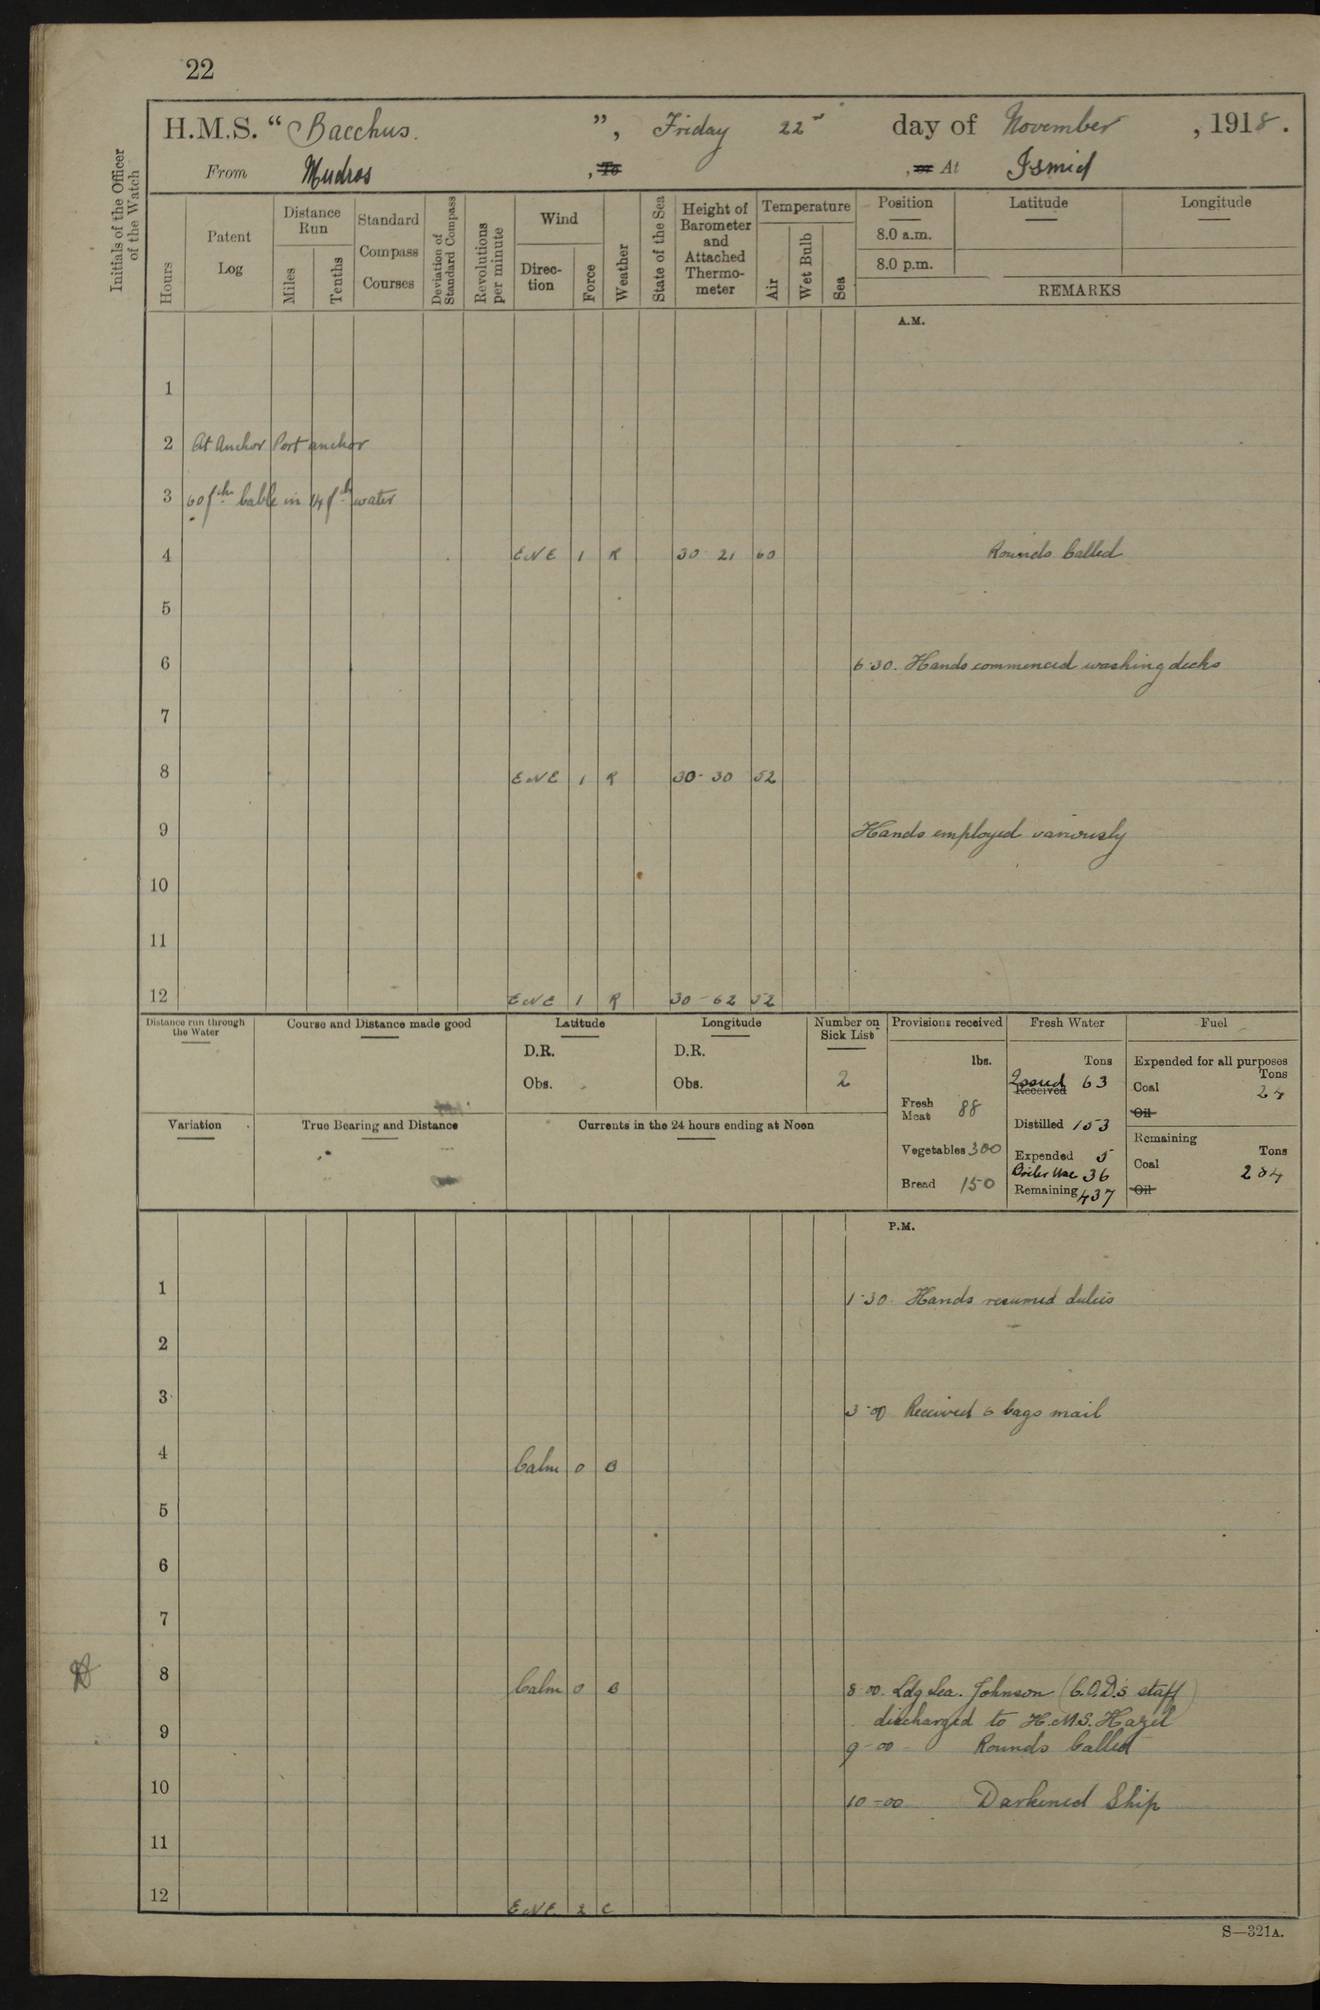 22
H.M.S. “Bacchus.”, Friday 22nd day of November, 1918.
From Mudros, To , or At Ismid
Initials of the Officer of the Watch
Hours
Patent Log
Distance Run
Miles
Tenths
Standard Compass Courses
Deviation of Standard Compass
Revolutions per minute
Wind
Direction
Force
Weather
State of the Sea
Height of Barometer and Attached Thermometer
Temperature
Air
Wet Bulb
Sea
Position
Latitude
Longitude
8.0 a.m.
8.0 p.m.
REMARKS
A.M.
1
2 At Anchor Port anchor
3 60 fths Cable in 14 fths water
4 ENE 1 R 30 21 60 Rounds Called
5
6 6.30. Hands commenced washing decks
7
8 ENE 1 R 30-30 52
9 Hands employed variously
10
11
12 ENE 1 R 30-62 52
Distance run through the Water
Course and Distance made good
Latitude
D.R.
Obs.
Longitude
D.R.
Obs.
Number on Sick List
2
Provisions received
lbs.
Fresh Meat 88
Vegetables 300
Bread 150
Fresh Water
Tons
Issued Received 63
Distilled 153
Expended 5
Boiler Use 36
Remaining 437
Fuel
Expended for all purposes
Tons
Coal 24
Oil
Remaining
Tons
Coal 204
Oil
Variation
True Bearing and Distance
Currents in the 24 hours ending at Noon
P.M.
1 1.30 Hands resumed duties
2
3 3-00 Received 6 bags mail
4 Calm 0 B
5
6
7
8 Calm 0 B 8-00. Ldg Sea. Johnson (C.O.D.'s staff)
discharged to H.M.S. Hazel
9 9-00 Rounds Called
10 10-00 Darkened Ship
11
12 ENE 2 C
S—321A.